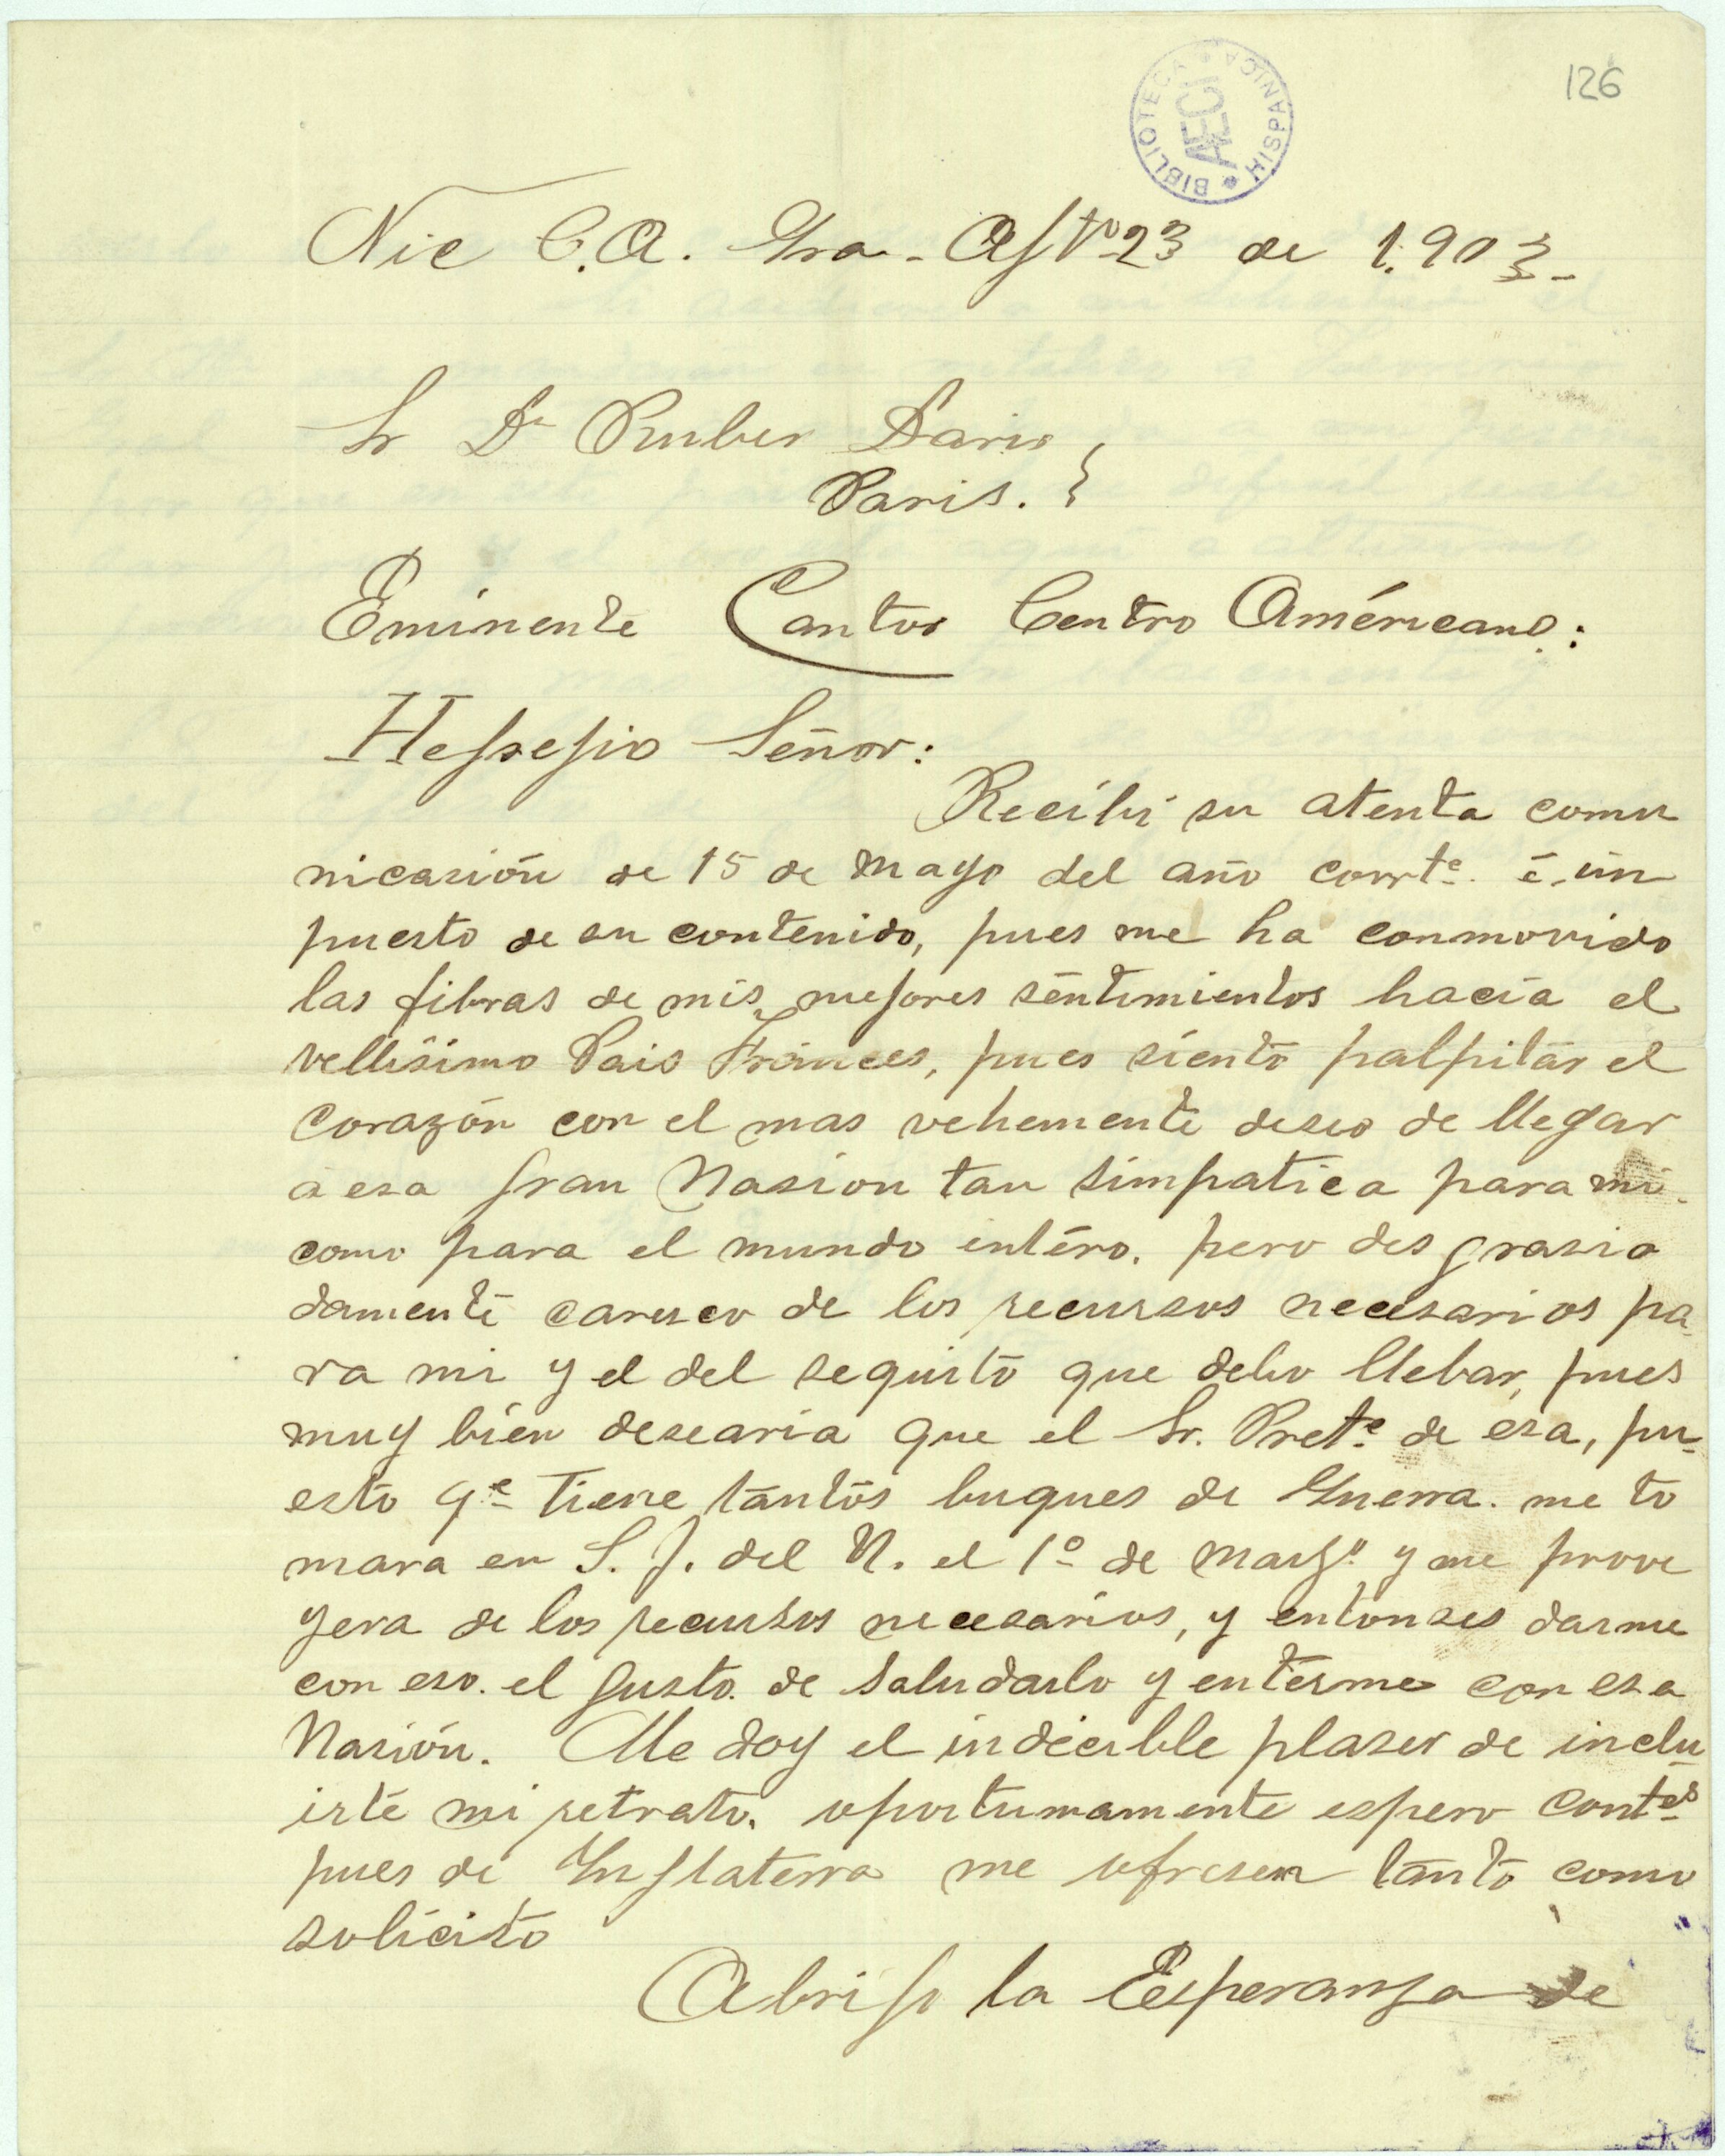 126
BIBLIOTECA HISPANICA
AECI
Nic C.A. Gra - Agto 23 de 1.903-
Sr Dn Ruben Dario
Paris. }
Eminente Cantor Centro Américano:
Señor:
Recibi su atenta comu
nicasión de 15 de Mayo del año corrte. é. im
puesto de su contenido, pues me ha conmovido
las fibras de mis mejores sentimientos hacia el
vellisimo Pais Frances, pues siento palpitar el
corazón con el mas vehemente deseo de llegar
a esa gran Nasion tan simpatica para mi.
como para el mundo intéro. pero desgrasia
damente caresco de los recursos necesarios pa
ra mi y el del sequito que debo llebar, pues
muy bien desearia que el Sr. Prete de esa, pu-
esto qe tiene tantos buques de Guerra. me to
mara en S. J. del N. el 1º de Marzo. y me prove
yera de los recursos necesarios, y entonses darme
con eso. el gusto. de saludarlo y enterme con esa
Nasión. Me doy el indecible plaser de inclu
irte mi retrato. oportunamente espero contes
pues de Inglaterra me ofresen tanto como
solicito
Abrigo la Esperansa de